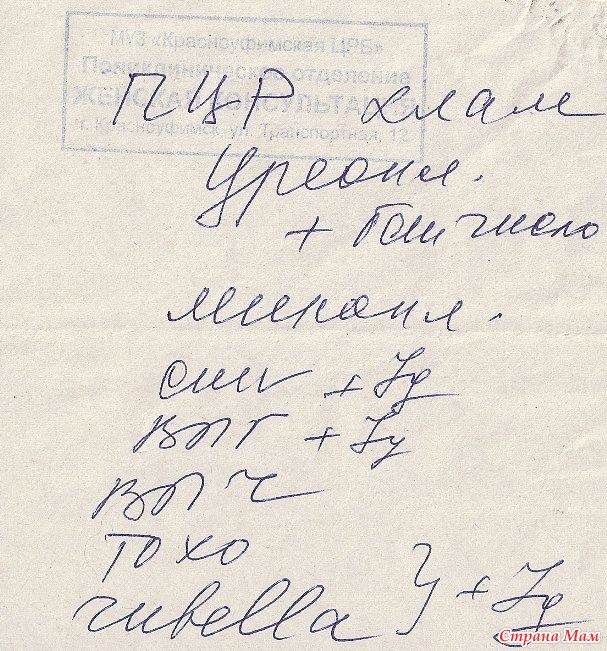 МУЗ «Красноуфимская ЦРБ»
Поликлиническое отделение
ЖЕНСКАЯ КОНСУЛЬТАЦИЯ
г. Красноуфимск, ул. Транспортная, 12
ПЦР хлам
Уреопл.
+ число
микопл.
+ Jg
ВПГ + Jg
ВПЧ
Тохо
rubella } + Jg
Страна Мам